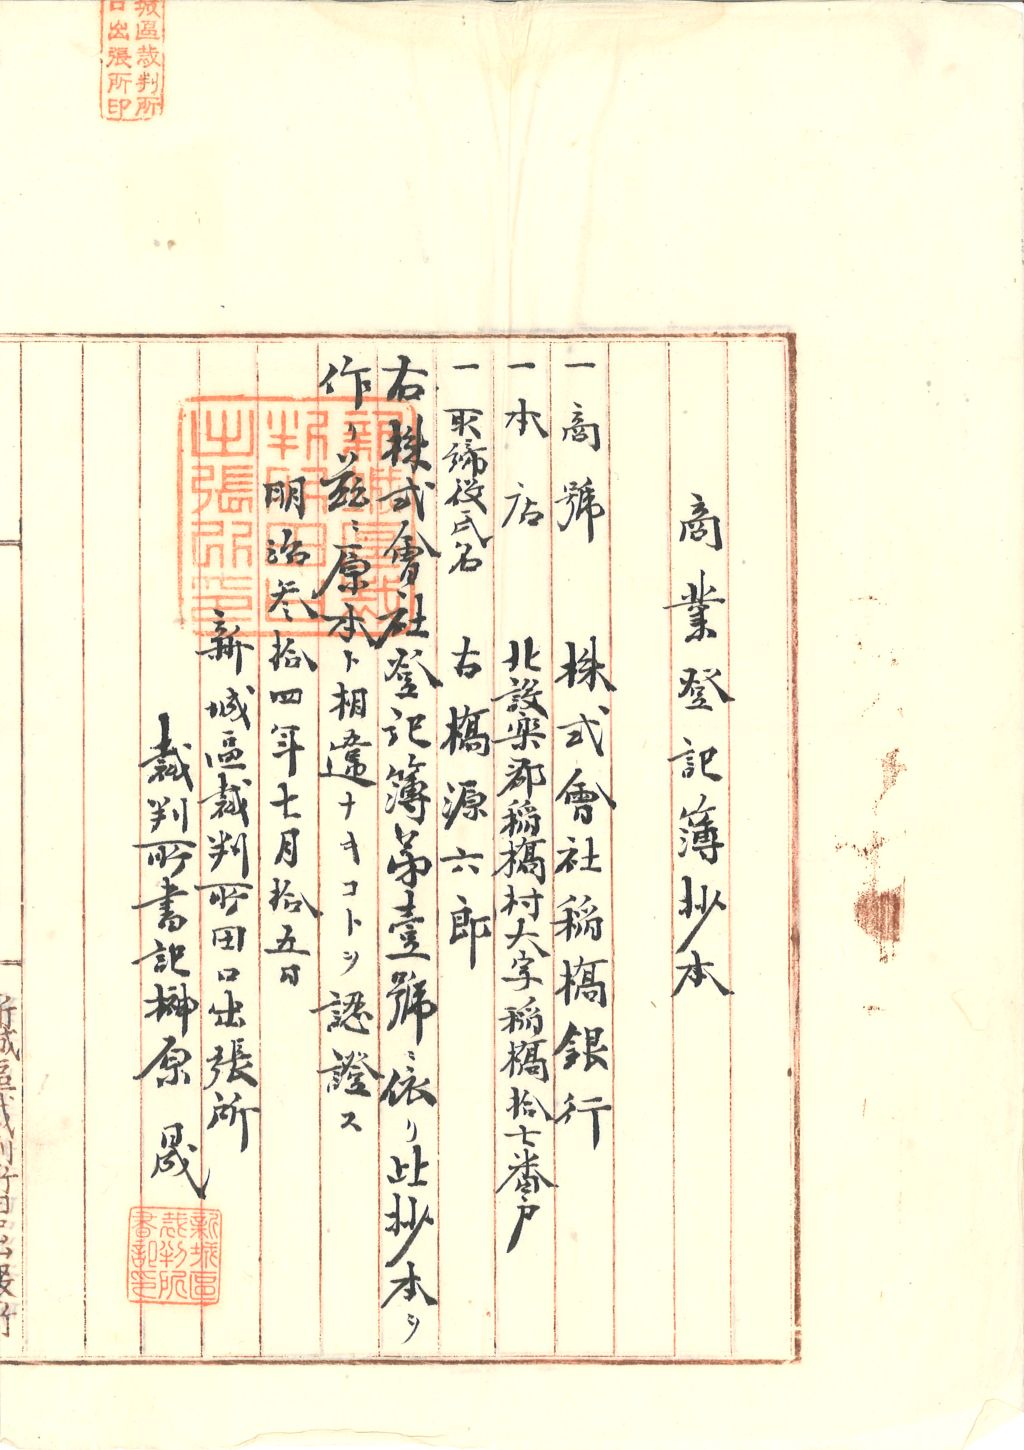 商業登記簿抄本
一商號 株式會社稲橋銀行
一本店 北設楽郡稲橋村大字稲橋拾七番戸
一取締役氏名 古橋源六郎
右株式會社登記簿第壹號ニ依リ此抄本ヲ
作リ茲ニ原本ト相違ナキコトヲ認證ス
明治参拾四年七月拾五日
新城區裁判所田口出張所
裁判所書記榊原晟
新城區裁
判所田口
出張所印
新城區
裁判所
書記印
城區裁判所
口出張所印
新城區裁判所田口出張所